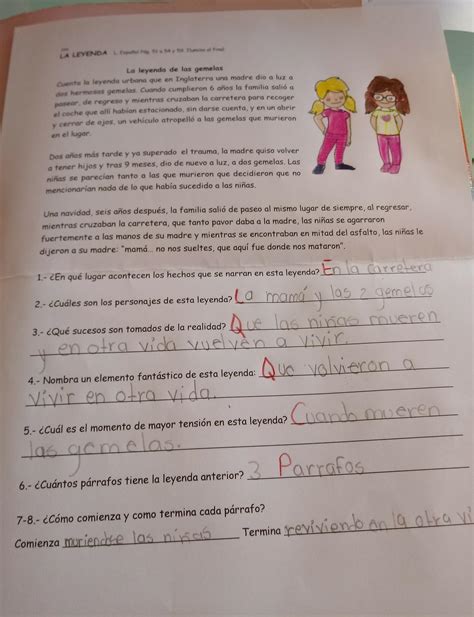 LA LEYENDA L. Español Pág. 52 a
La leyenda de las gemelas
Cuenta la leyenda urbana que en Inglaterra una madre dio a luz a
dos hermosas gemelas. Cuando cumplieron 6 años la familia salió a
pasear, de regreso y mientras cruzaban la carretera para recoger
el coche que allí habían estacionado, sin darse cuenta, y en un abrir
y cerrar de ojos, un vehículo atropelló a las gemelas que murieron
en el lugar.
Dos años más tarde y ya superado el trauma, la madre quiso volver
a tener hijos y tras 9 meses, dio de nuevo a luz, a dos gemelas. Las
niñas se parecían tanto a las que murieron que decidieron que no
mencionarían nada de lo que había sucedido a las niñas.
Una navidad, seis años después, la familia salió de paseo al mismo lugar de siempre, al regresar,
mientras cruzaban la carretera, que tanto pavor daba a la madre, las niñas se agarraron
fuertemente a las manos de su madre y mientras se encontraban en mitad del asfalto, las niñas le
dijeron a su madre: "mamá... no nos sueltes, que aquí fue donde nos mataron".
1.- ¿En qué lugar acontecen los hechos que se narran en esta leyenda? En la carretera
2.- ¿Cuáles son los personajes de esta leyenda? La mamá y las 2 gemelas
3.- ¿Qué sucesos son tomados de la realidad? Que las niñas mueren
y en otra vida vuelven a vivir.
4.- Nombra un elemento fantástico de esta leyenda: Que volvieron a
vivir en otra vida.
5.- ¿Cuál es el momento de mayor tensión en esta leyenda? Cuando mueren
las gemelas.
6.- ¿Cuántos párrafos tiene la leyenda anterior? 3 Parrafos
7-8.- ¿Cómo comienza y como termina cada párrafo?
Comienza muriendose las niñas Termina reviviendo en la otra vi